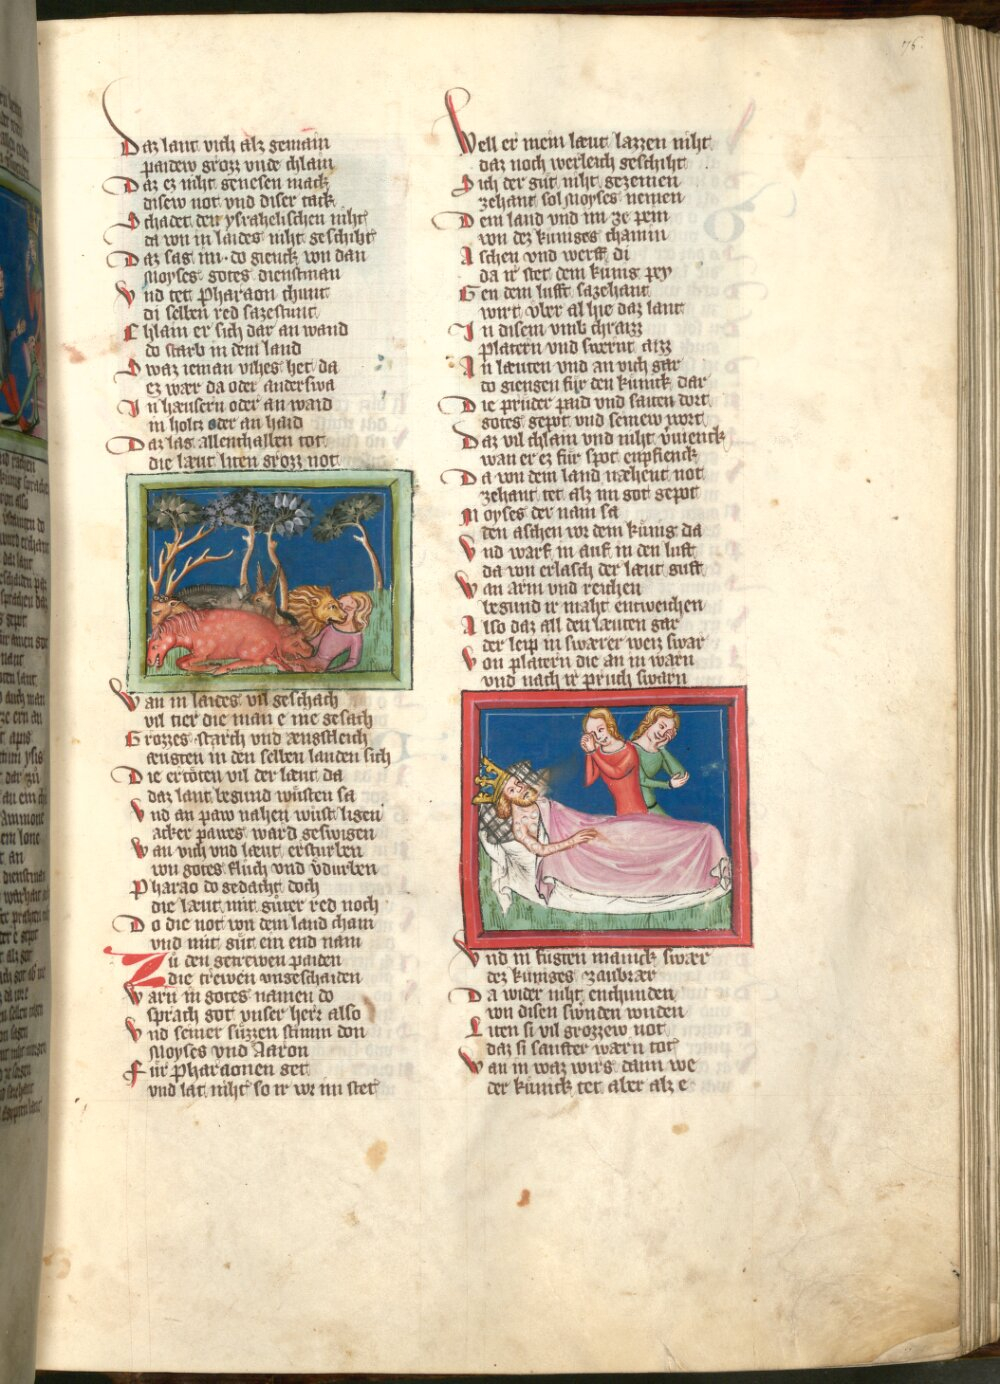 76.
Daz lant vich alz gemain
paidew grozz vnde chlain
Daz ez niht genesen mack
disew not vnd diser tack
Schadet den ysrahelischen niht
da von in laides niht geschiht
Daz sag im do gienck von dan
Moyses gotes dienstman
Vnd tet Pharaon chunt
di selben red sazestunt
Chlain er sich dar an wand
do starb in dem land
Swaz ieman vihes het da
ez wær da oder anderswa
In hæusern oder an waid
in holtz oder an haid
Daz lag allenthalben tot
die læut liten grozz not
Wan in laides vil geschach
vil tier die man e nie gesach
Grozzes starch vnd ængstleich
æugten in den selben landen sich
Die ertöten vil der læut da
daz lant begund wüsten sa
Vnd an paw nahen wüst ligen
acker pawes ward geswigen
Wan vich vnd læut ersturben
von gotes flüch vnd vdurben
Pharao do gedacht doch
die læut mit güter red noch
Do die not von dem land cham
vnd mit güt ein end nam
Zu den getrewen paiden
die trewen vngeschaiden
Warn in gotes namen do
sprach got vnser herr also
Vnd seiner süzzen stimm don
Moyses vnd Aaron
Für Pharaonen get
vnd lat niht so ir vor im stet
Well er mein læut lazzen niht
daz noch werleich geschiht
Sich der güt niht gezemen
zehant sol Moyses nemen
Dem land vnd im ze pein
von dez küniges chamin
Aschen vnd werff di
da ir stet dem künig pey
Gen dem lufft sazehant
wirt vber al hie daz lant
In disem vmb chraizz
platern vnd swernt aizz
An læuten vnd an vich gar
do giengen für den künick dar
Die prüder paid vnd saiten dort
gotes gepot vnd seinew wort
Daz vil chlain vnd niht vuienck
wan er ez für spot enpfienck
Da von dem land næhent not
zehant tet alz im got gepot
Moyses der nam sa
den aschen vor dem künig da
Vnd warf in auf in den luft
da von erlasch der læut guft
Wan arm vnd reichen
begund ir maht entweichen
Also daz all den læuten gar
der leip in swærer weis swar
Von platern die an in warn
vnd nach ir pruch swarn
Vnd in füsten manick swær
dez küniges zaubrær
Da wider niht enchunden
von disen swünden wnden
Liten si vil grozzew not
daz si sanfter wærn tot
Wan in waz wirs dann we
der künick tet aber alz e